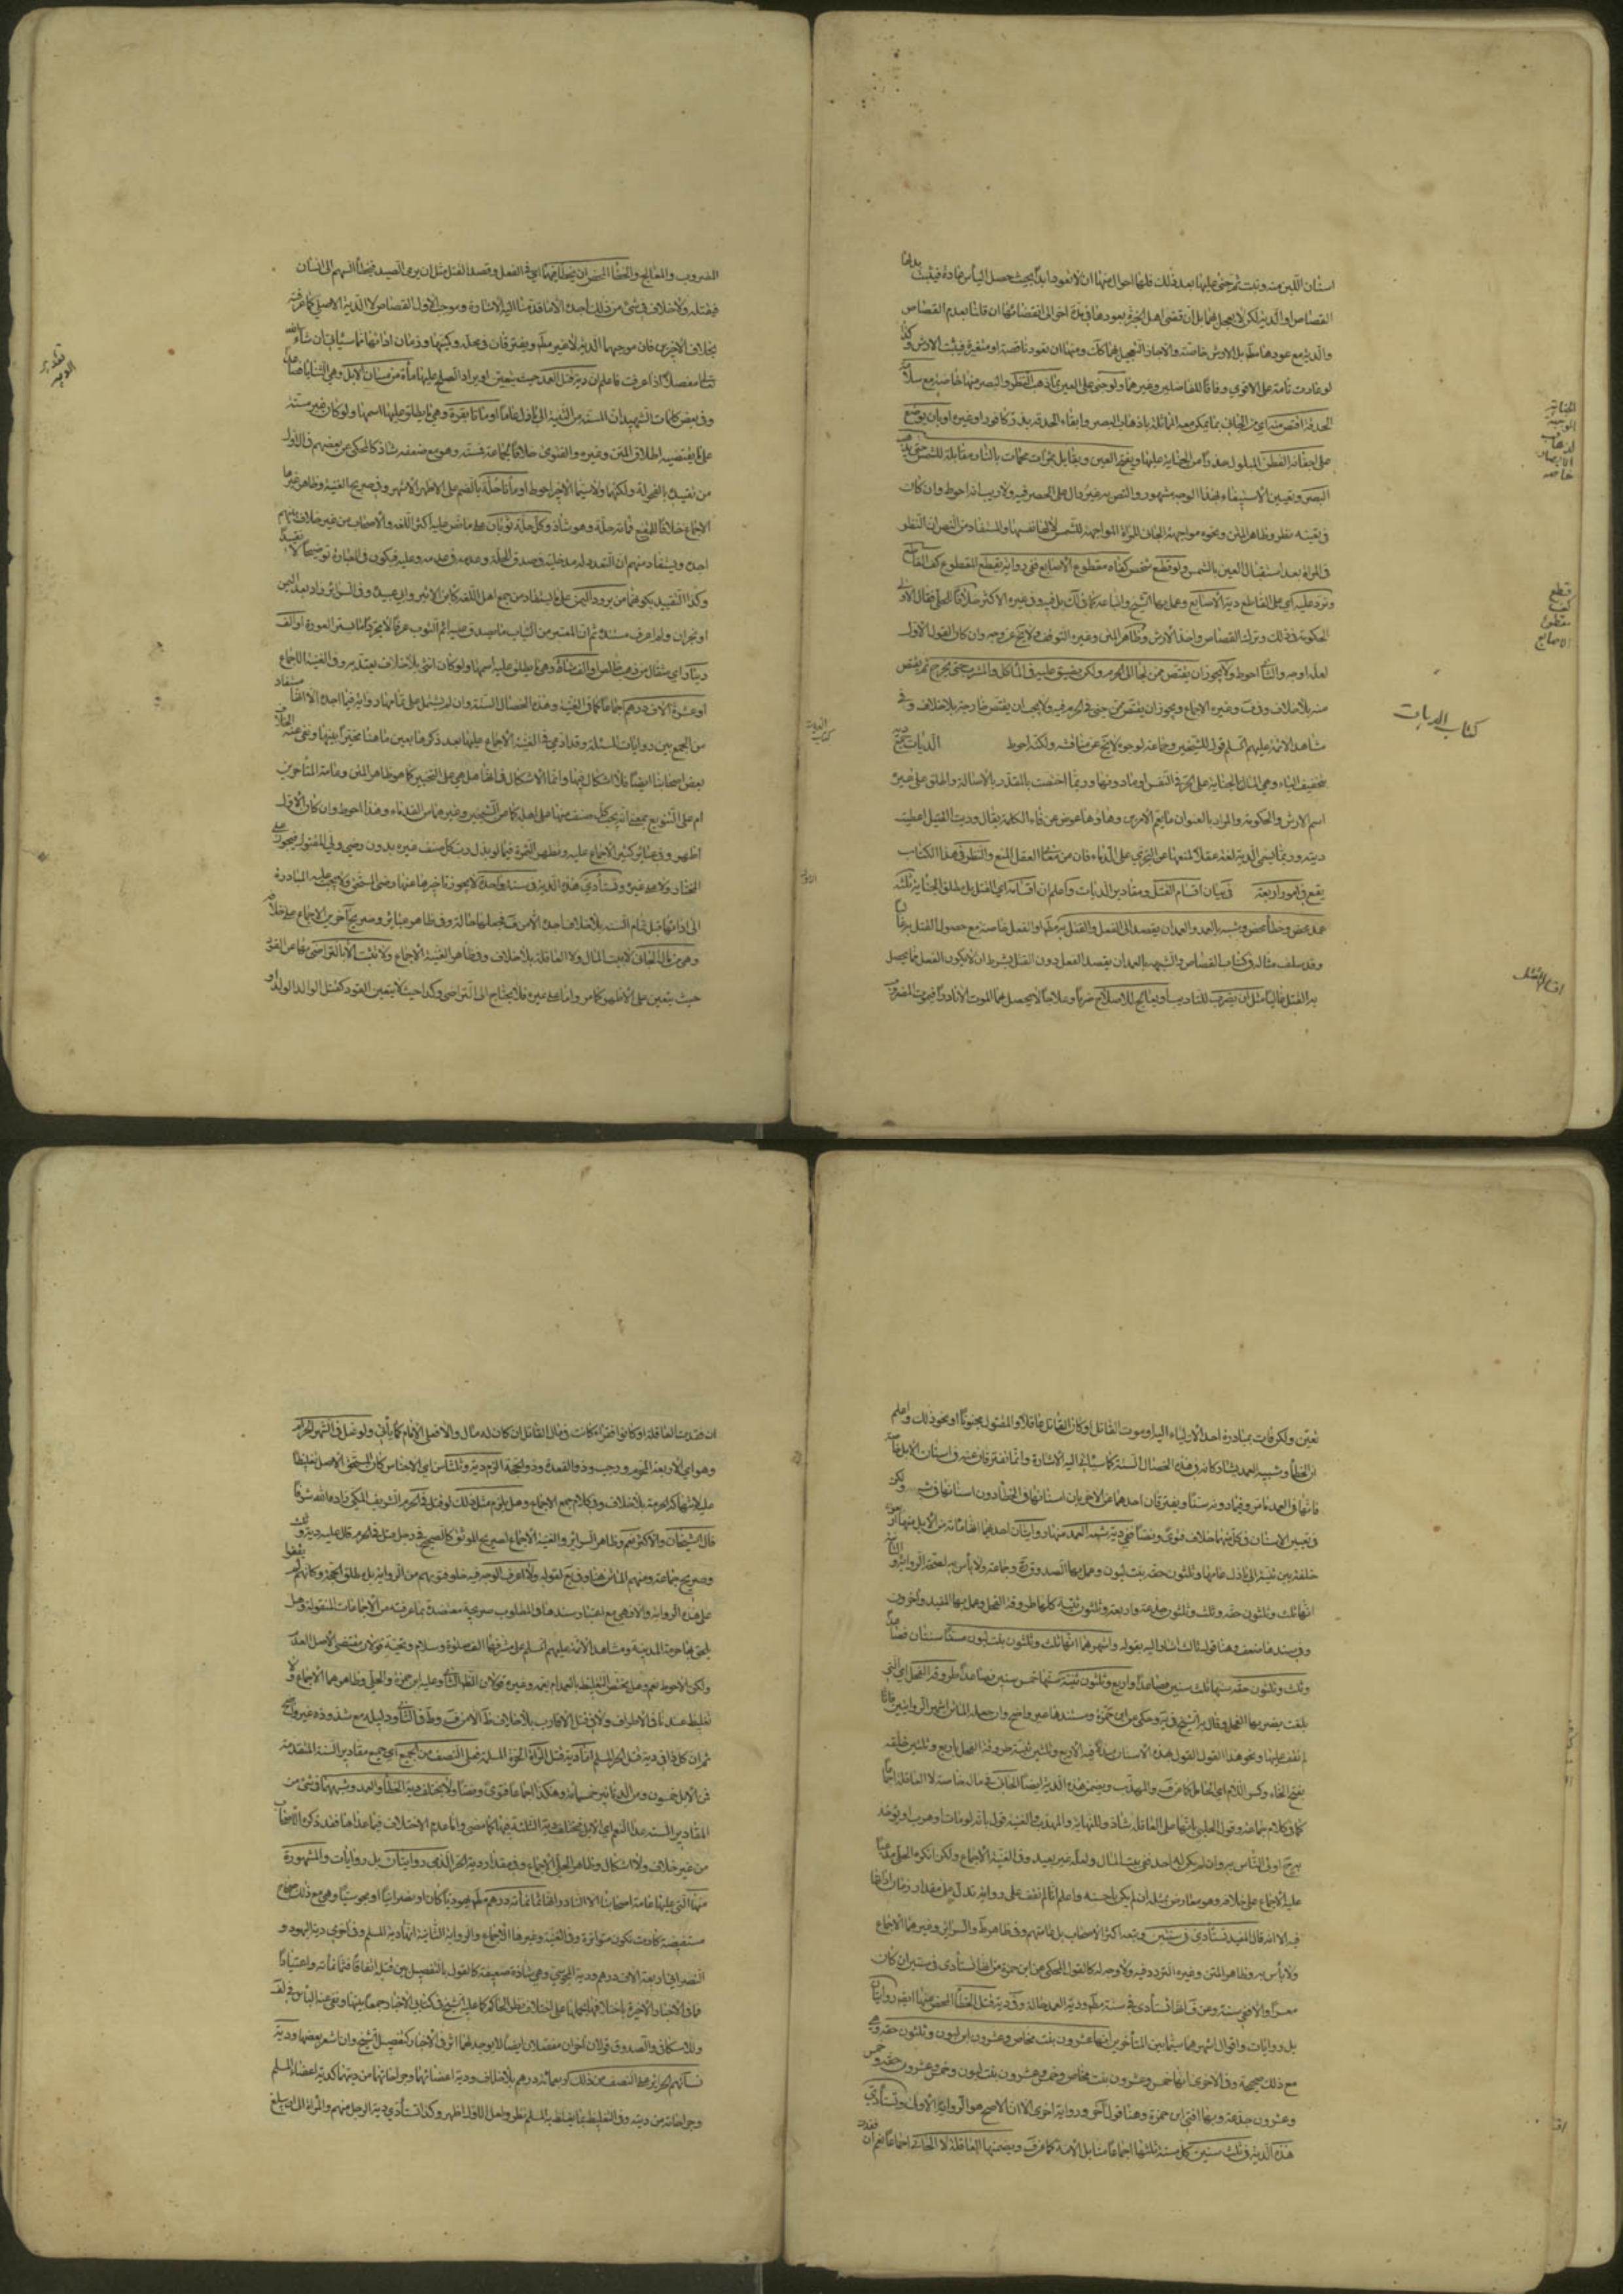 اسنان اللبن منه ونبت ثم جنى عليها بعد ذلك فلها احوال منها ان لا تعود ابداً بحيث حصل الياس عادة فيثبت بدلها
القصاص او الدية لكن لا يعجل بهما بل ان قضى اهل الخبرة بعودها في مدة اخر الى انقضائها ان قلنا بعدم القصاص
والدية مع عودها
لو عادت تامة على الاقوى وفاقاً للفاضلين وغيرهما ولو جنى على العين بما اذهب النظر والبصر منها خاصة مع سلامة
الحدقة اقتص منه اي من الجاني بما يمكن معه المماثلة باذهاب البصر وابقاء الحدقة بذر كافور او غيره او بان يوضع
على اجفانه القطن المبلول حذراً من الجناية عليها ويفتح العين ويقابل بمرات محماة بالنار مقابلة للشمس حتى يذهب
البصر وتعيين الاستيفاء بهذا الوجه مشهور والنص به غير دال على الحصر فيه ولا ريب انه احوط وان كان
في تعينه نظر وظاهر المتن ونحوه مواجهة الجاني للمرآة المواجهة للشمس لا لها نفسها والمستفاد من النص ان النظر
في المرآة بعد استقبال العين بالشمس ولو قطع شخص كفاه مقطوع الاصابع ففي رواية تقطع المقطوع كف القاطع
وترد عليه اي على القاطع دية الاصابع وعمل بها الشيخ واتباعه
الحكومة في ذلك وترك القصاص واخذ الارش وظاهر المتن وغيره التوقف ولا يخ عن وجه وان كان القول الاول
لعله اوجه والثاني احوط ولا يجوز ان يقتص ممن لجأ الى الحرم ولكن يضيق عليه في المأكل والمشرب حتى يخرج ثم يقتص
منه بلا خلاف وفي
وغيره الاجماع ويجوز ان يقتص ممن جنى في الحرم فيه ولا يجب ان يقتص خارجه بلا خلاف وفي
مشاهد الائمة عليهم السلم قول للشيخين وجماعة لوجوه لا تخ عن مناقشة ولكنه احوط الديات جمع دية
بتخفيف الياء وهي المال بالجناية على الحر في النفس او ما دونها وربما اختصت بالمقدر بالاصالة واطلق على غيره
اسم الارش والحكومة والمراد بالعنوان ما يعم الامرين وهاؤها عوض عن فاء الكلمة يقال وديت القتيل اعطيت
ديته وربما يسمى الدية لغة عقلاً لمنعها عن التجري على الدماء فان من معاني العقل المنع والنظر في هذا الكتاب
يقع في امور اربعة في بيان اقسام القتل ومقادير الديات واعلم ان اقسامه اي القتل بل مطلق الجناية ثلثة
عمد محض وخطأ محض وشبيه بالعمد والعمد ان يقصد الى الفعل والقتل
او الفعل خاصة مع حصول القتل به غالباً
وقد سلف مثاله في كتاب القصاص والشبيه بالعمد ان يقصد الفعل دون القتل بشرط ان لا يكون الفعل مما يحصل
به القتل غالباً مثل ان يضرب للتاديب او يعالج للاصلاح ضرباً وعلاجاً لا يحصل بهما الموت الا نادراً فيموت المضروب
الجناية الموجبة لذهاب الابصار خاصة
قطع كف مقطوع الاصابع
كتاب الديات
اقسام القتل
المضروب والمعالج والخطأ المحض ان يخطأ فيهما اي في الفعل وقصد القتل مثل ان يرمي الصيد فيخطأ السهم الى انسان
فيقتله ولا خلاف في شئ من ذلك اجده الا ما قدمنا اليه الاشارة وموجب الاول القصاص لا الدية الا صلحاً كما عرفته
بخلاف الاخيرين فان موجبهما الدية لا غير
ويفترقان في محله وكيفيتها وزمان ادائها كما سيأتي ان شاء الله
تعالى مفصلاً اذا عرفت فاعلم ان دية قتل العمد حيث يتعين او يراد الصلح عليها مأة من مسان الابل وهي الثنايا فصاعداً
وفي بعض كلمات الشهيد ان المسنة من الثنية الى بازل عامها او مائتا بقرة وهي ما يطلق عليها اسمها ولو كان غير مسنة
على ما يقتضيه اطلاق المتن وغيره والفتوى خلافاً لجماعة فمسنة وهو مع ضعفه شاذ كالمحكي عن بعضهم في الاول
من تقييده بالفحولة ولكنهما ولا سيما الاخير احوط او مأتا حلة بالضم على الاظهر الاشهر وفي صريح الغنية وظاهر غيرها
الاجماع خلافاً للمقنع فمائة حلة وهو شاذ وكل حلة ثوبان على ما نص عليه اكثر اللغة والاصحاب من غير خلاف بينهم
اجده ويستفاد منهم ان التعدد له مدخلية في صدق الحلة وعدمه في عدمه وعليه فيكون في العبارة توضيحاً لا تقييداً
وكذا التقييد بكونهما من برود اليمن على ما يستفاد من جمع اهل اللغة كابن الاثير وابي عبيد وفي السرائر زاد بعد اليمن
او نجران ولم اعرف مستنده ثم ان المعتبر من الثياب ما يصدق عليه اسم الثوب عرفاً لا مجرد ما يستر العورة او الف
دينار اي مثقال من ذهب خالص او الف شاة وهي ما يطلق عليه اسمها ولو كان انثى بلا خلاف يعتد به وفي الغنية الاجماع
او عشرة الاف درهم اجماعاً كما في الغنية وهذه الخصال الستة وان لم يشتمل على تمامها رواية فيما اجده الا انها مستفاد
من الجمع بين روايات المسئلة وقد ادعى في الغنية الاجماع عليها بعد ذكرها بعين ما هنا مخيراً بينها ونفى عنه الخلاف
بعض اصحابنا ايضاً فلا اشكال فيها وانما الاشكال في انها هل هي على التخيير كما هو ظاهر المتن وعامة المتأخرين
ام على التنويع بمعنى انه يجب كل صنف منها على اهله كما عن الشيخين وغيرهما من القدماء وهذا احوط وان كان الاول
اظهر وفي
الاجماع عليه وتظهر الثمرة فيما لو بذل رب كل صنف غيره بدون رضى ولي المقتول فيجوز على
المختار ولا على غيره وتستأدى هذه الدية في سنة واحدة لا يجوز تأخيرها عنها
ولا يجب عليه المبادرة
الى ادائها قبل تمام السنة بلا خلاف اجده الا من
فجعلها حالة وفي ظاهر
الاجماع على خلافه
وهي من مال الجاني لا بيت المال ولا العاقلة بلا خلاف وفي ظاهر الغنية الاجماع ولا تثبت الا بالتراضي بها عن القود
حيث يتعين على الاظهر كما مر واما على غيره فلا يحتاج الى التراضي وكذا حيث لا يتعين القود كقتل الوالد الولد او
تقدير الدية
كتاب الديات
تعين ولكن فات بمبادرة احد الاولياء اليه او موت القاتل او كان القاتل عاقلاً والمقتول مجنوناً او نحو ذلك واعلم
ان الخطأ وشبيه العمد يشاركانه في هذه الخصال الستة كما سيأتي اليه الاشارة وانما تفترقان عنه في اسنان الابل خاصة
فانها في العمد ما مر وفيما دونه سناً ويفترقان احدهما عن الاخر بان اسنانها في الخطأ دون اسنانها في شبهه ولكن
في تعيين الاسنان في كل منهما خلاف فتوى ونصاً ففي دية شبيه العمد منها روايتان احدهما انها مائة من الابل منها اربعون
خلفة بين ثنية الى بازل عامها وثلثون حقة وثلثون بنت لبون وعمل بها الصدوق
وجماعة ولا بأس به لصحة الرواية والثانية
انها ثلث وثلثون حقة وثلث وثلثون جذعة واربعة وثلثون ثنية كلها طروقة الفحل وعمل بها المفيد واخرون
وفي سندها ضعف وهنا قول ثالث اشار اليه بقوله واشهرهما انها ثلث وثلثون بنت لبون سنها سنتان فصاعداً
وثلث وثلثون حقة سنها ثلث سنين فصاعداً واربع وثلثون ثنية سنها خمس سنين فصاعداً طروقة الفحل اي التي
بلغت يضربها الفحل وقال به الشيخ
وحكي عن ابن حمزة ومستندها غير واضح وان جعله الماتن اشهر الروايتين فانا
لم نقف عليها ونحو هذا القول القول بهذه الاسنان مبدلاً فيه الاربع وثلثين ثنية طروقة الفحل باربع وثلثين خلفة
بفتح الخاء وكسر اللام اي الحامل كما عن
والمهذب ويضمن هذه الدية ايضاً الجاني في ماله خاصة لا العاقلة اجماعاً
كما في كلام جماعة وقول الحلبي بانها على العاقلة شاذ وللنهاية والمهذب والغنية قول بانه لو مات او هرب او يؤخذ
بها اولى الناس به وان لم يكن له احد ففي بيت المال ولعله غير بعيد وفي الغنية الاجماع ولكن انكره الحلي مدعياً
عليه الاجماع على خلافه وهو معارض بمثله ان لم يكن باحسنه واعلم انا لم نقف على رواية تدل على مقدار زمان ادائها
فيه الا انه قال المفيد تستأدى في سنتين وتبعه اكثر الاصحاب بل عامتهم وفي ظاهر
والسرائر وغيرهما الاجماع
ولا بأس به وظاهر المتن وغيره التردد فيه ولا وجه له كالقول المحكي عن ابن حمزة من انها تستأدى في سنتين ان كان
معسراً والا ففي سنة وعن
انها تستأدى في سنة
ودية العمد حالة وفي دية قتل الخطأ المحض منها ايضاً روايتان
بل روايات واقوال اشهرهما سيما بين المتأخرين انها عشرون بنت مخاض وعشرون ابن لبون وثلثون حقة وهي
مع ذلك صحيحة وفي الاخرى انها خمس وعشرون بنت مخاض وخمس وعشرون بنت لبون وخمس وعشرون حقة وخمس
وعشرون جذعة وبها افتى ابن حمزة وهنا قول آخر ورواية اخرى الا ان الاصح هو الرواية الاولى وتستأدى
هذه الدية في ثلث سنين كل سنة ثلثها اجماعاً منا بل الامة كما عن
ويضمنها العاقلة لا الجاني اجماعاً نعم ان فقدت
ان فقدت العاقلة او كانوا فقراء كانت في مال القاتل ان كان له مال والا فعلى الامام كما يأتي ولو قتل في الشهر الحرام
وهو اي الاربعة المحرم ورجب وذو القعدة وذو الحجة الزم دية وثلثاً من اي الاجناس كان لمستحق الاصل تغليظاً
عليه لانتهاكه الحرمة بلا خلاف وفي كلام جمع الاجماع وهل يلزم مثل ذلك لو قتل في الحرم الشريف المكي زاده الله شرفاً
قال الشيخان والاكثر نعم وظاهر السرائر والغنية الاجماع لصريح الموثق كالصحيح في رجل قتل في الحرم قال عليه دية وثلث
وصريح جماعة ومنهم الماتن هنا وفي
لقوله ولا اعرف الوجه فيه خلو فتويهم من الرواية بل مطلق الحجة وكأنهم لم يقفوا
على هذه الرواية والا فهي مع اعتبار سندها في المطلوب صريحة معتضدة بما عرفته من الاجماعات المنقولة وهل
يلحق بها حرم المدينة ومشاهد الائمة عليهم السلم على مشرفها الف صلوة وسلام وتحية قولان مقتضى الاصل العدم
ولكن الاحوط نعم وهل يختص التغليظ بالعمد ام يعمه وغيره قولان اظهرهما الثاني وعليه ابن حمزة والحلي وظاهرهما الاجماع ولا
تغليظ عندنا في الاطراف ولا في قتل الاقارب بلا خلاف
الا من
في الثاني ودليله مع شذوذه غير واضح
ثم ان كل ذا في دية قتل الحر المسلم اما دية قتل المرأة الحرة المسلمة فعلى النصف من الجميع اي جميع مقادير الستة المتقدمة
فمن الابل خمسون ومن الدنانير خمسمائة وهكذا اجماعاً فتوى ونصاً ولا يختلف دية الخطأ والعمد وشبههما في شئ من
المقادير الستة عدا النعم اي الابل فتختلف دية الثلثة فيها كما مضى واما عدم الاختلاف فيما عداها فقد ذكره الاصحاب
من غير خلاف ولا اشكال وظاهر الحلي الاجماع وفي مقدار دية الحر الذمي روايتان بل روايات والمشهورة
منها التي عليها عامة اصحابنا الا النادر انها ثمانمائة درهم
يهودياً كان او نصرانياً او مجوسياً وهي مع ذلك صحاح
مستفيضة كادت تكون متواترة وفي الغنية وغيرها الاجماع والرواية الثانية انها دية المسلم وفي اخرى دية اليهود و
النصراني اربعة الاف درهم ودية المجوسي وهي شاذة ضعيفة كالقول بالتفصيل بين قتله اتفاقاً فثمانمائة واعتياداً
فما في الاخبار الاخيرة باختلافها بحملها على اختلاف نظر الحاكم كما عليه الشيخ في كتابي الاخبار جمعاً بينها ونفى عنه البأس في لف
وللاسكافي والصدوق قولان اخران مفصلان ايضاً لا يوجد لهما اثر في الاخبار كتفصيل الشيخ وان اشعر بعضها ودية
نسائهم الحراير على النصف من ذلك اربعمائة درهم بلا خلاف ودية اعضائهما وجراحاتهما من ديتهما كدية اعضاء المسلم
وجراحاته من ديته وفي التغليظ بما يغلظ به المسلم نظر ولعل الاول اظهر وكذا تستأدى دية الرجل منهم والمرأة الى ان يبلغ